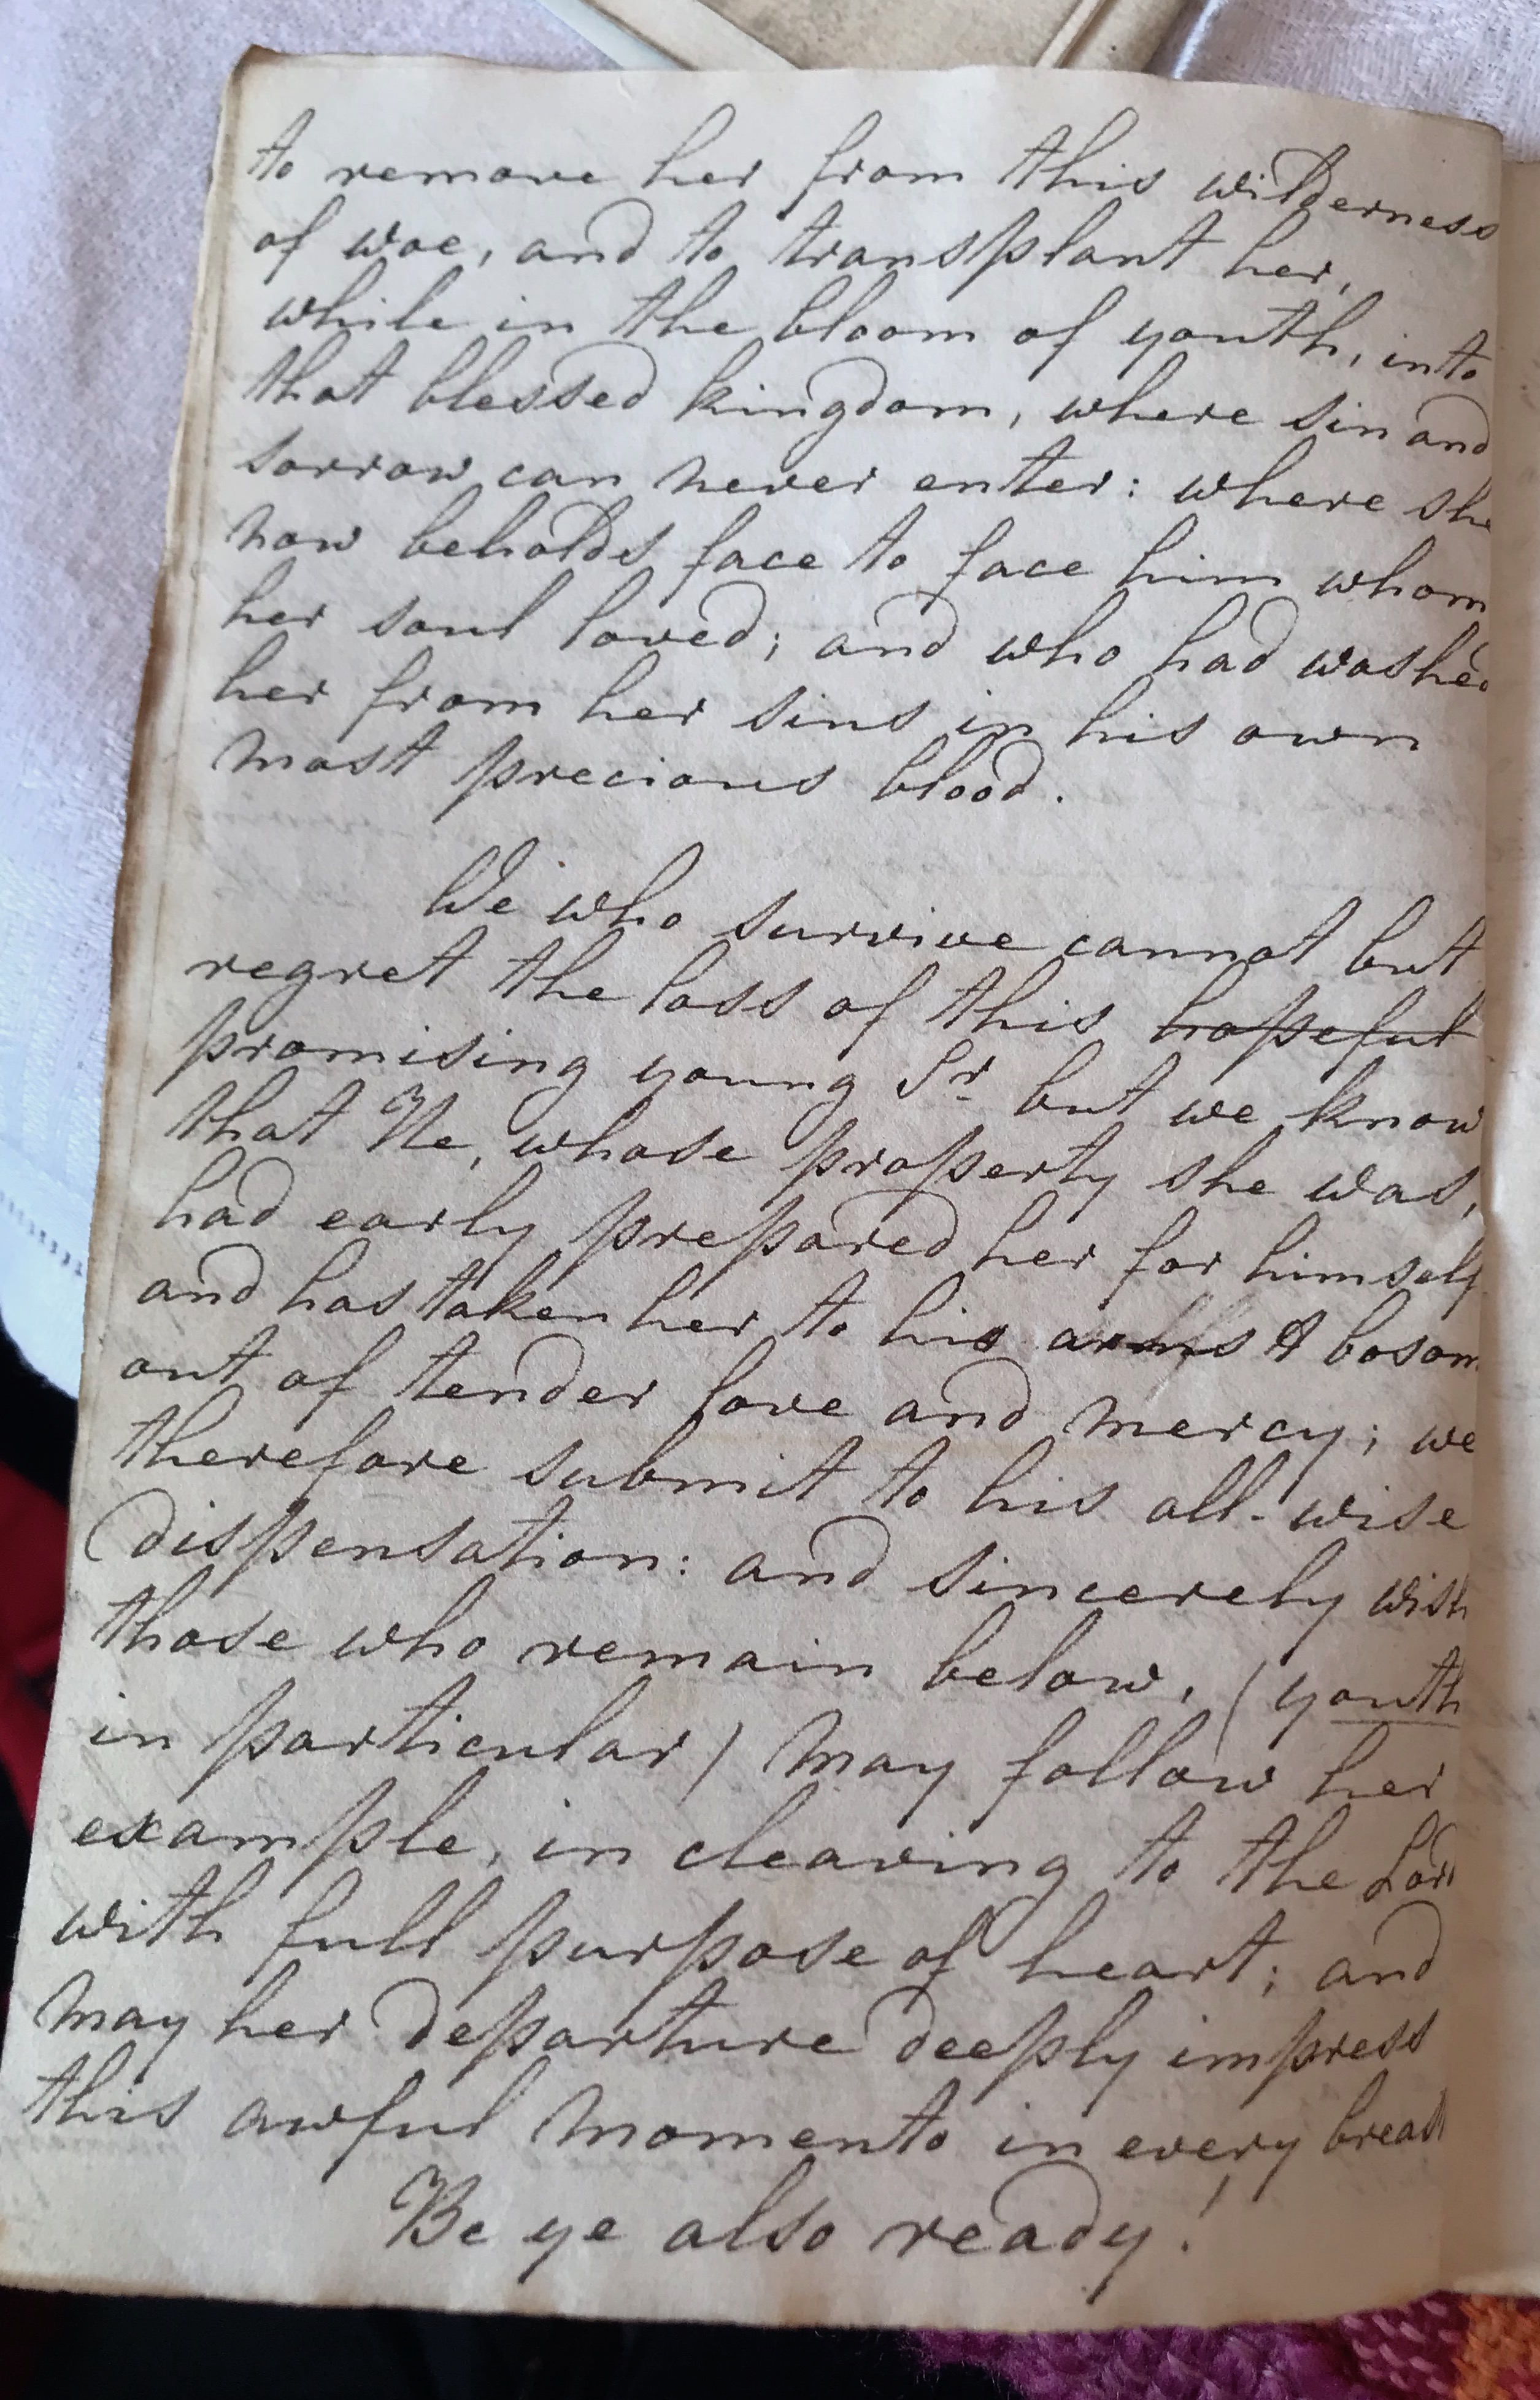 to remove her from this wilderness
of woe, and to transplant her,
while in the bloom of youth, into
that blessed kingdom, where sin and
sorrow can never enter: where she
now beholds face to face him whom
her soul loved; and who had washed
her from her sins in his own
most precious blood.
We who survive cannot but
regret the loss of this hopeful
promising young Sr. but we know
that He, whose property she was,
had early prepared her for himself
and has taken her to his arms & bosom
out of tender love and mercy; we
therefore submit to his all-wise
dispensation: and sincerely wish
those who remain below, (youth
in particular) may follow her
example, in cleaving to the Lord
with full purpose of heart; and
may her departure deeply impress
this awful momento in every breast
Be ye also ready!